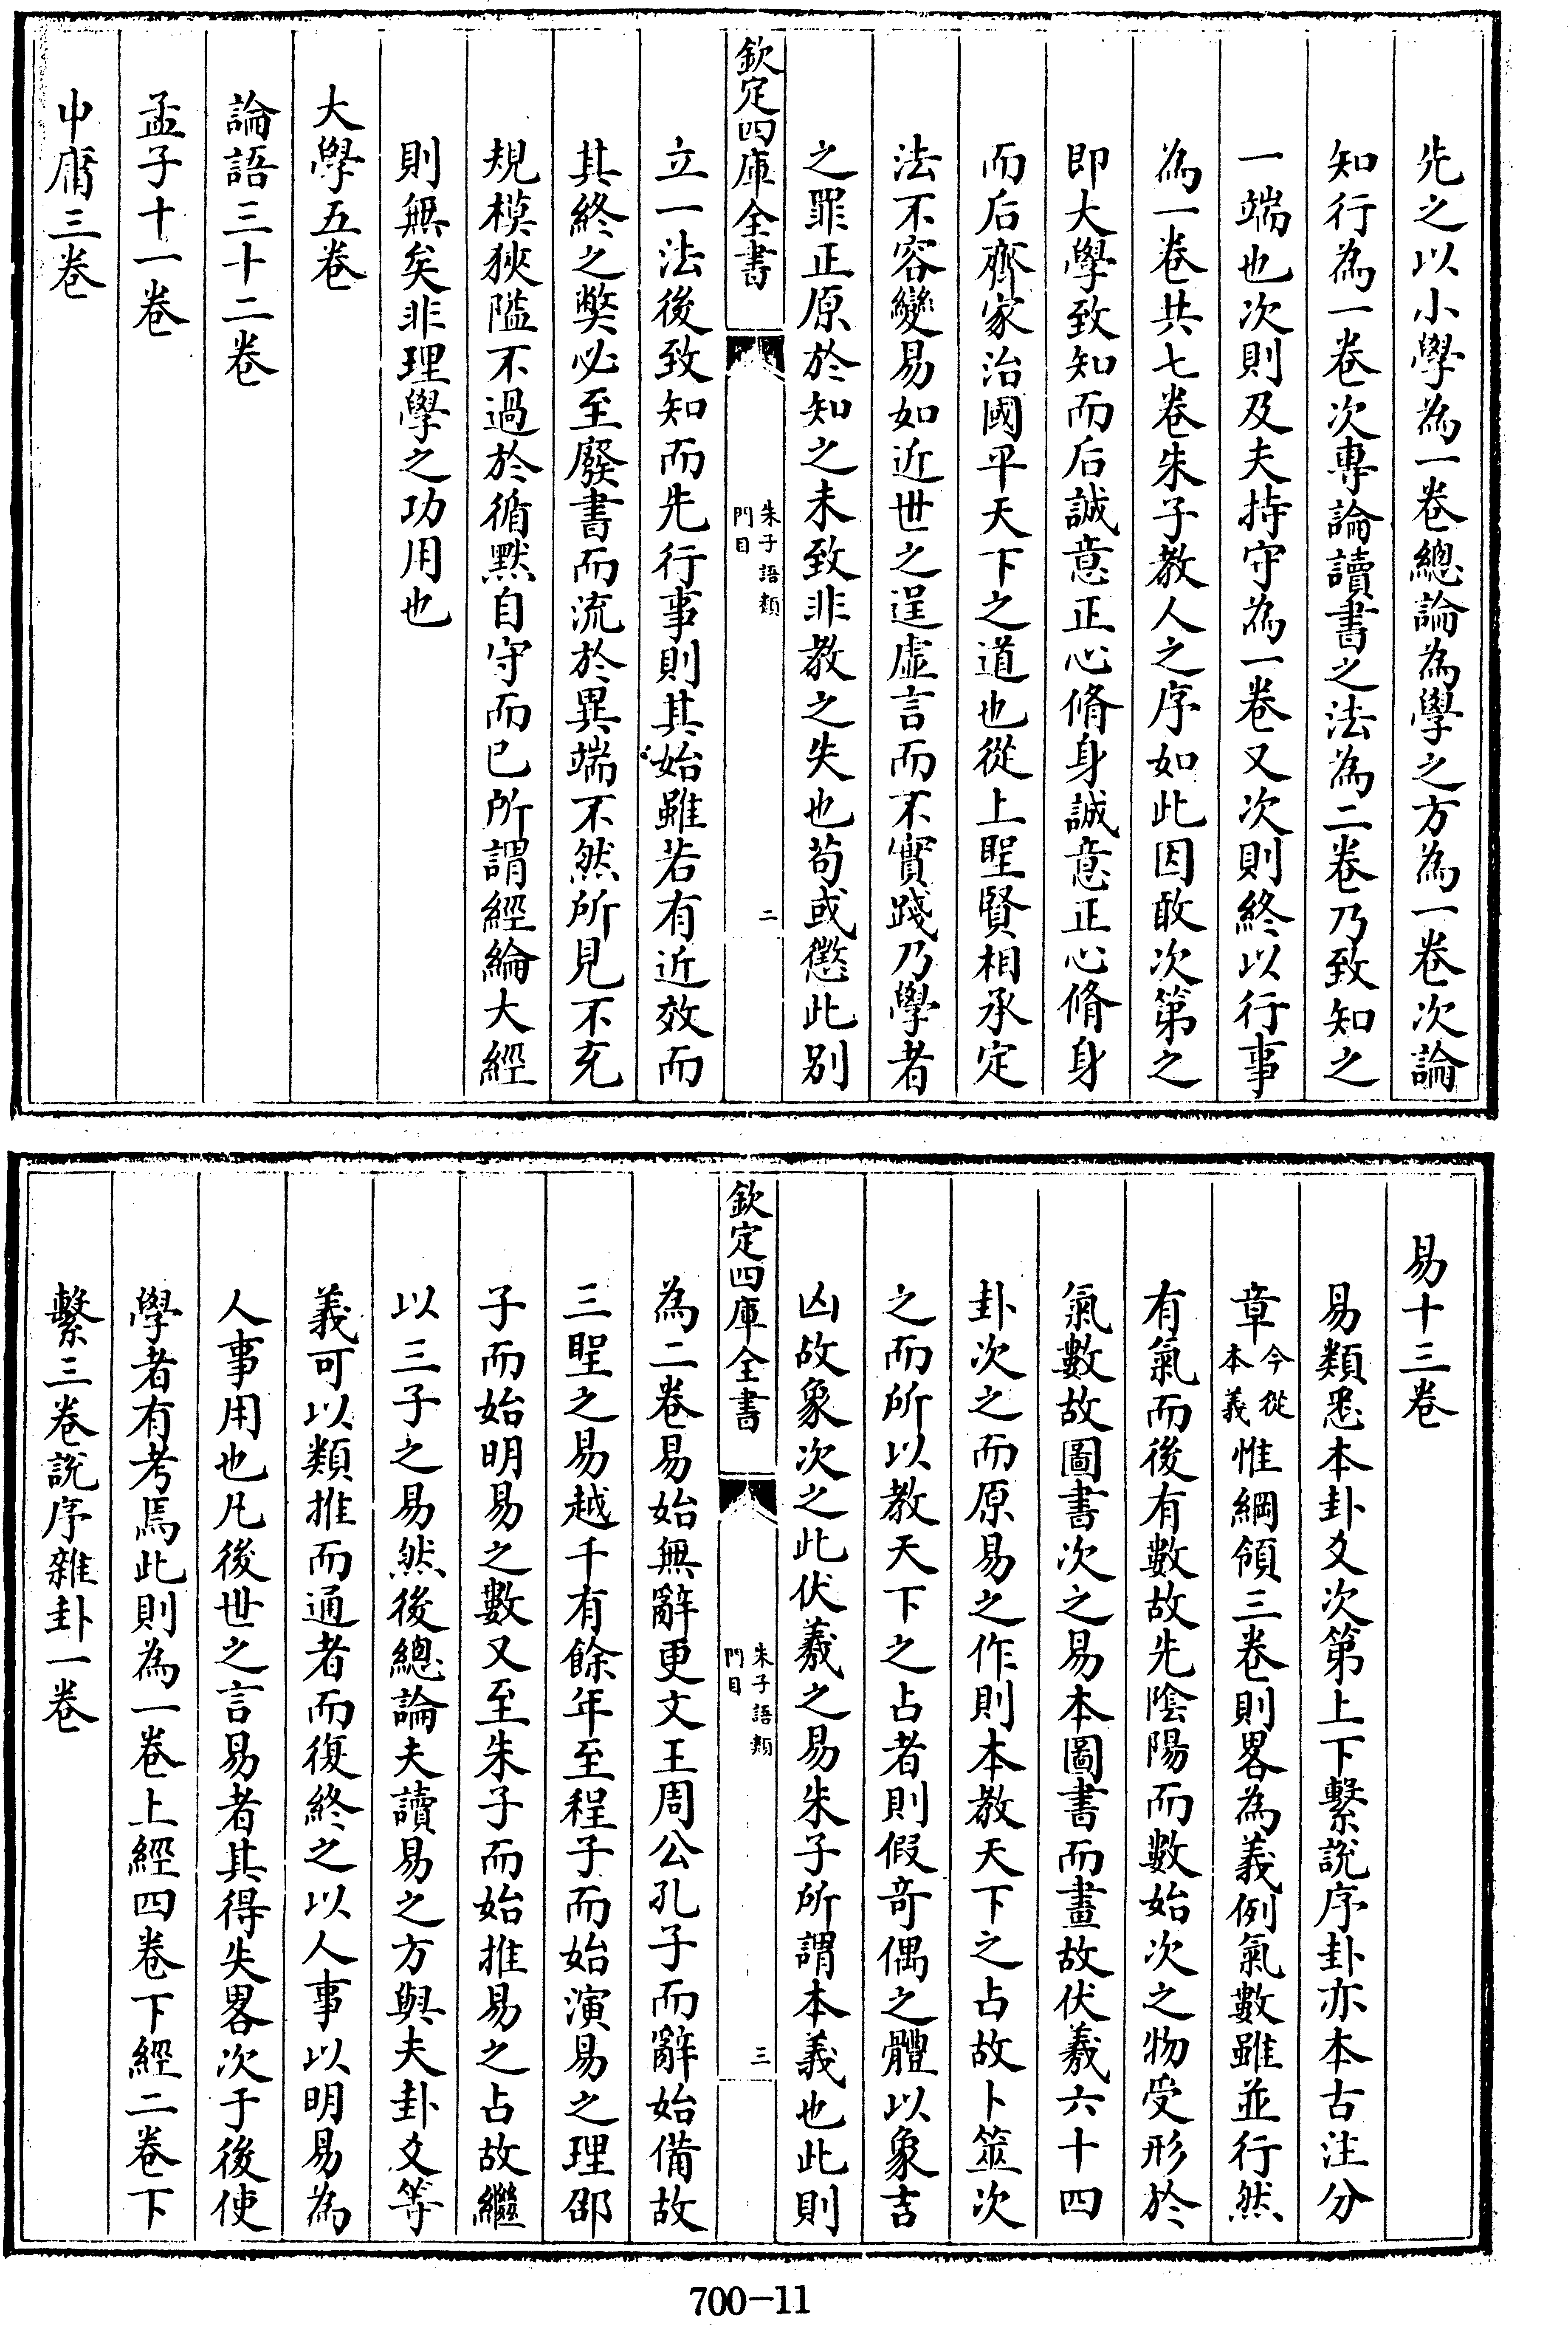 先之以小學為一卷總論為學之方為一卷次論
知行為一卷次專論讀書之法為二卷乃致知之
一端也次則及夫持守為一卷又次則終以行事
為一卷共七卷朱子教人之序如此因敢次第之
即大學致知而后誠意正心脩身誠意正心脩身
而后齊家治國平天下之道也從上聖賢相承定
法不容變易如近世之逞虛言而不實踐乃學者
之罪正原於知之未致非教之失也苟或懲此別
欽定四庫全書
朱子語類
門目
二
立一法後致知而先行事則其始雖若有近效而
其終之弊必至廢書而流於異端不然所見不充
規模狹隘不過於循默自守而已所謂經綸大經
則無矣非理學之功用也
大學五卷
論語三十二卷
孟子十一卷
中庸三卷
易十三卷
易類悉本卦爻次第上下繫說序卦亦本古注分
章今從本義惟綱領三卷則畧為義例氣數雖並行然
有氣而後有數故先陰陽而數始次之物受形於
氣數故圖書次之易本圖書而畫故伏羲六十四
卦次之而原易之作則本教天下之占故卜筮次
之而所以教天下之占者則假奇偶之體以象吉
凶故象次之此伏羲之易朱子所謂本義也此則
欽定四庫全書
朱子語類
門目
三
為二卷易始無辭更文王周公孔子而辭始備故
三聖之易越千有餘年至程子而始演易之理邵
子而始明易之數又至朱子而始推易之占故繼
以三子之易然後總論夫讀易之方與夫卦爻等
義可以類推而通者而復終之以人事以明易為
人事用也凡後世之言易者其得失畧次于後使
學者有考焉此則為一卷上經四卷下經二卷下
繫三卷說序雜卦一卷
700-11